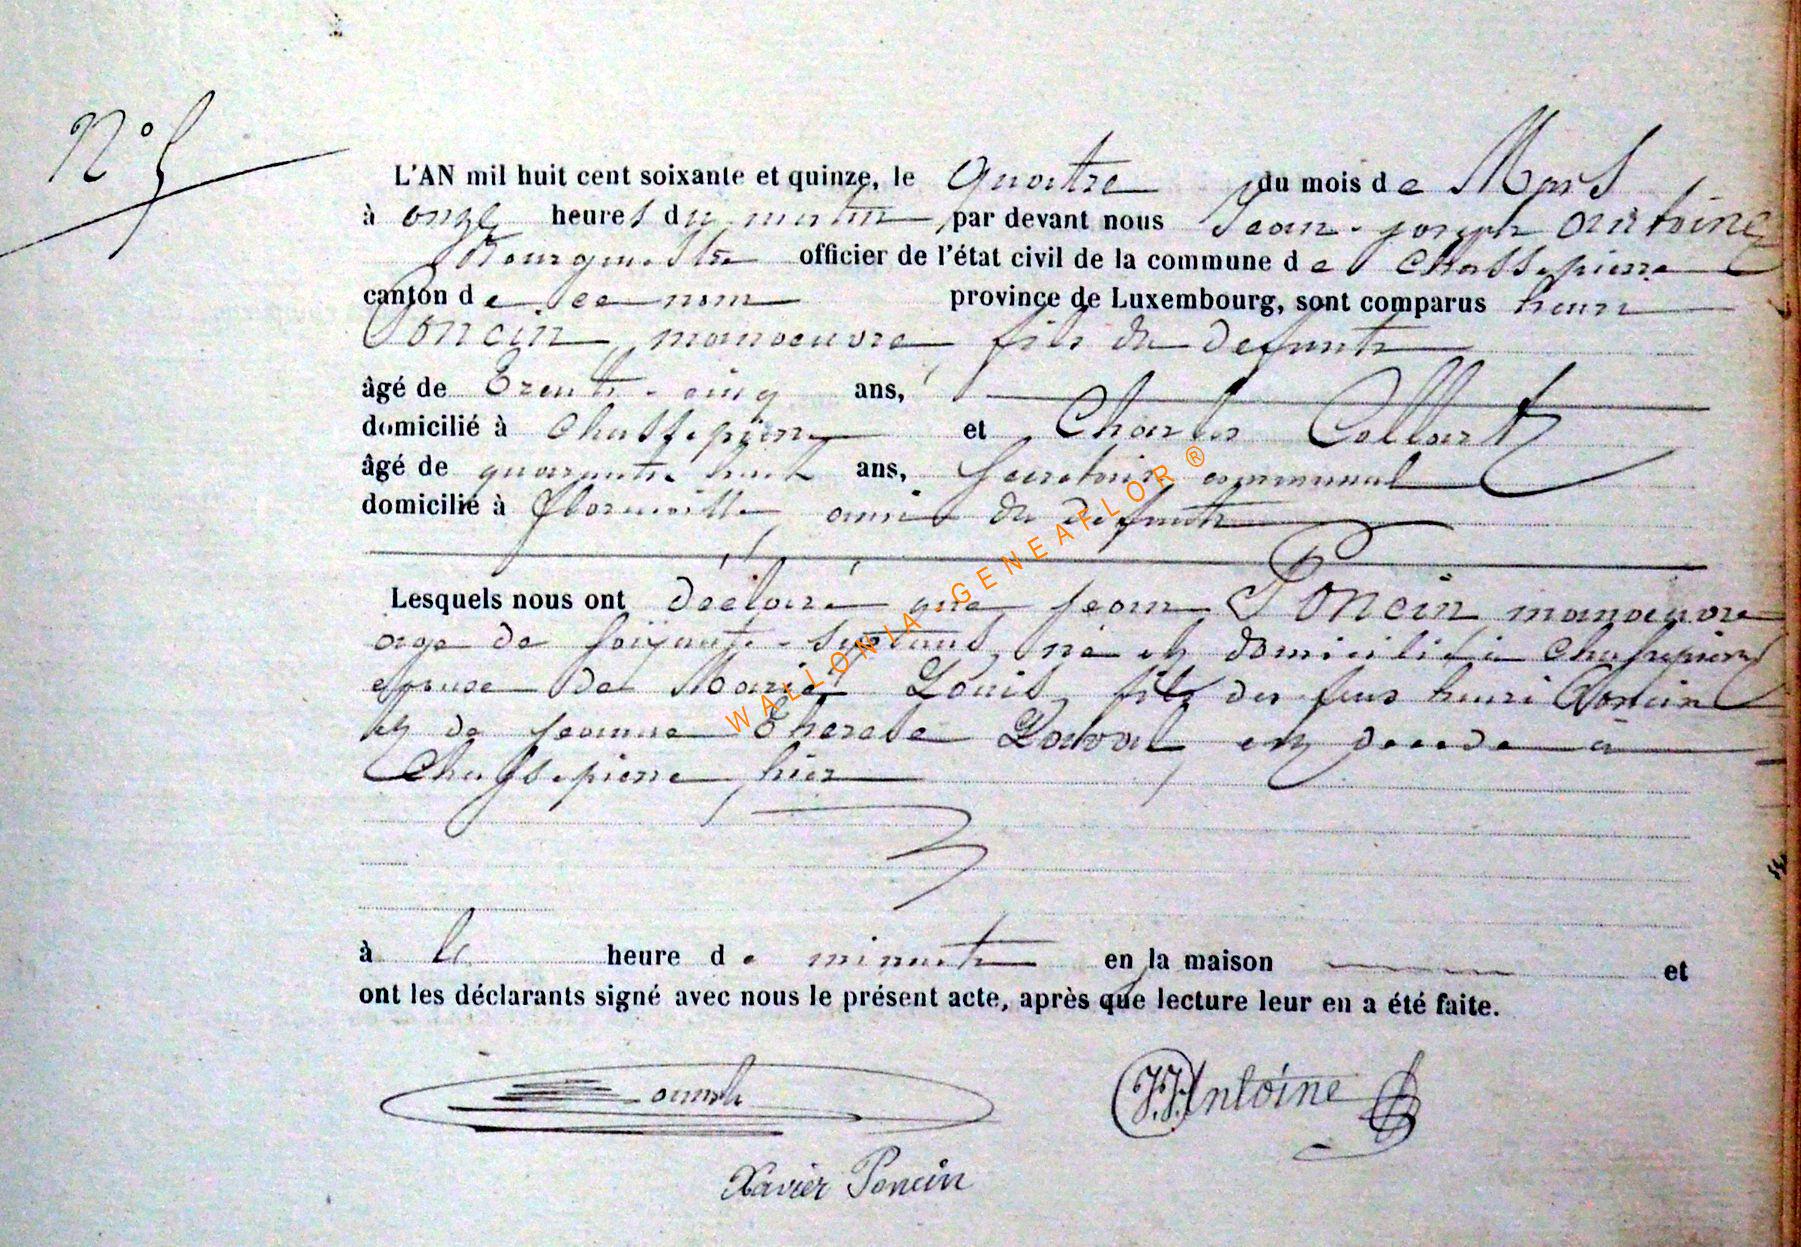 N° 5
L'AN mil huit cent soixante et quinze, le quatre du mois de Mars
à onze heures du matin par devant nous Jean-joseph antoine
Bourgmestre officier de l'état civil de la commune de Chassepierre
canton de ce nom province de Luxembourg, sont comparus henri
Poncin, manoeuvre fils du defunt
âgé de trente-cinq ans,
domicilié à Chassepierre et Charles Collart
âgé de quarante huit ans, Secretaire communal
domicilié à Florenville, ami du defunt
Lesquels nous ont déclaré que jean Poncin manoeuvre
age de soixante-sept ans, né et domicilié à Chassepierre
epoux de Marie Louis, fils des feus henri Poncin
et de jeanne Therese est decede a
Chassepierre, hier
à heure de minute en la maison et
ont les déclarants signé avec nous le présent acte, après que lecture leur en a été faite.
J.J. Antoine
Xavier Poncin
WALLONIA GENEAFLOR ®